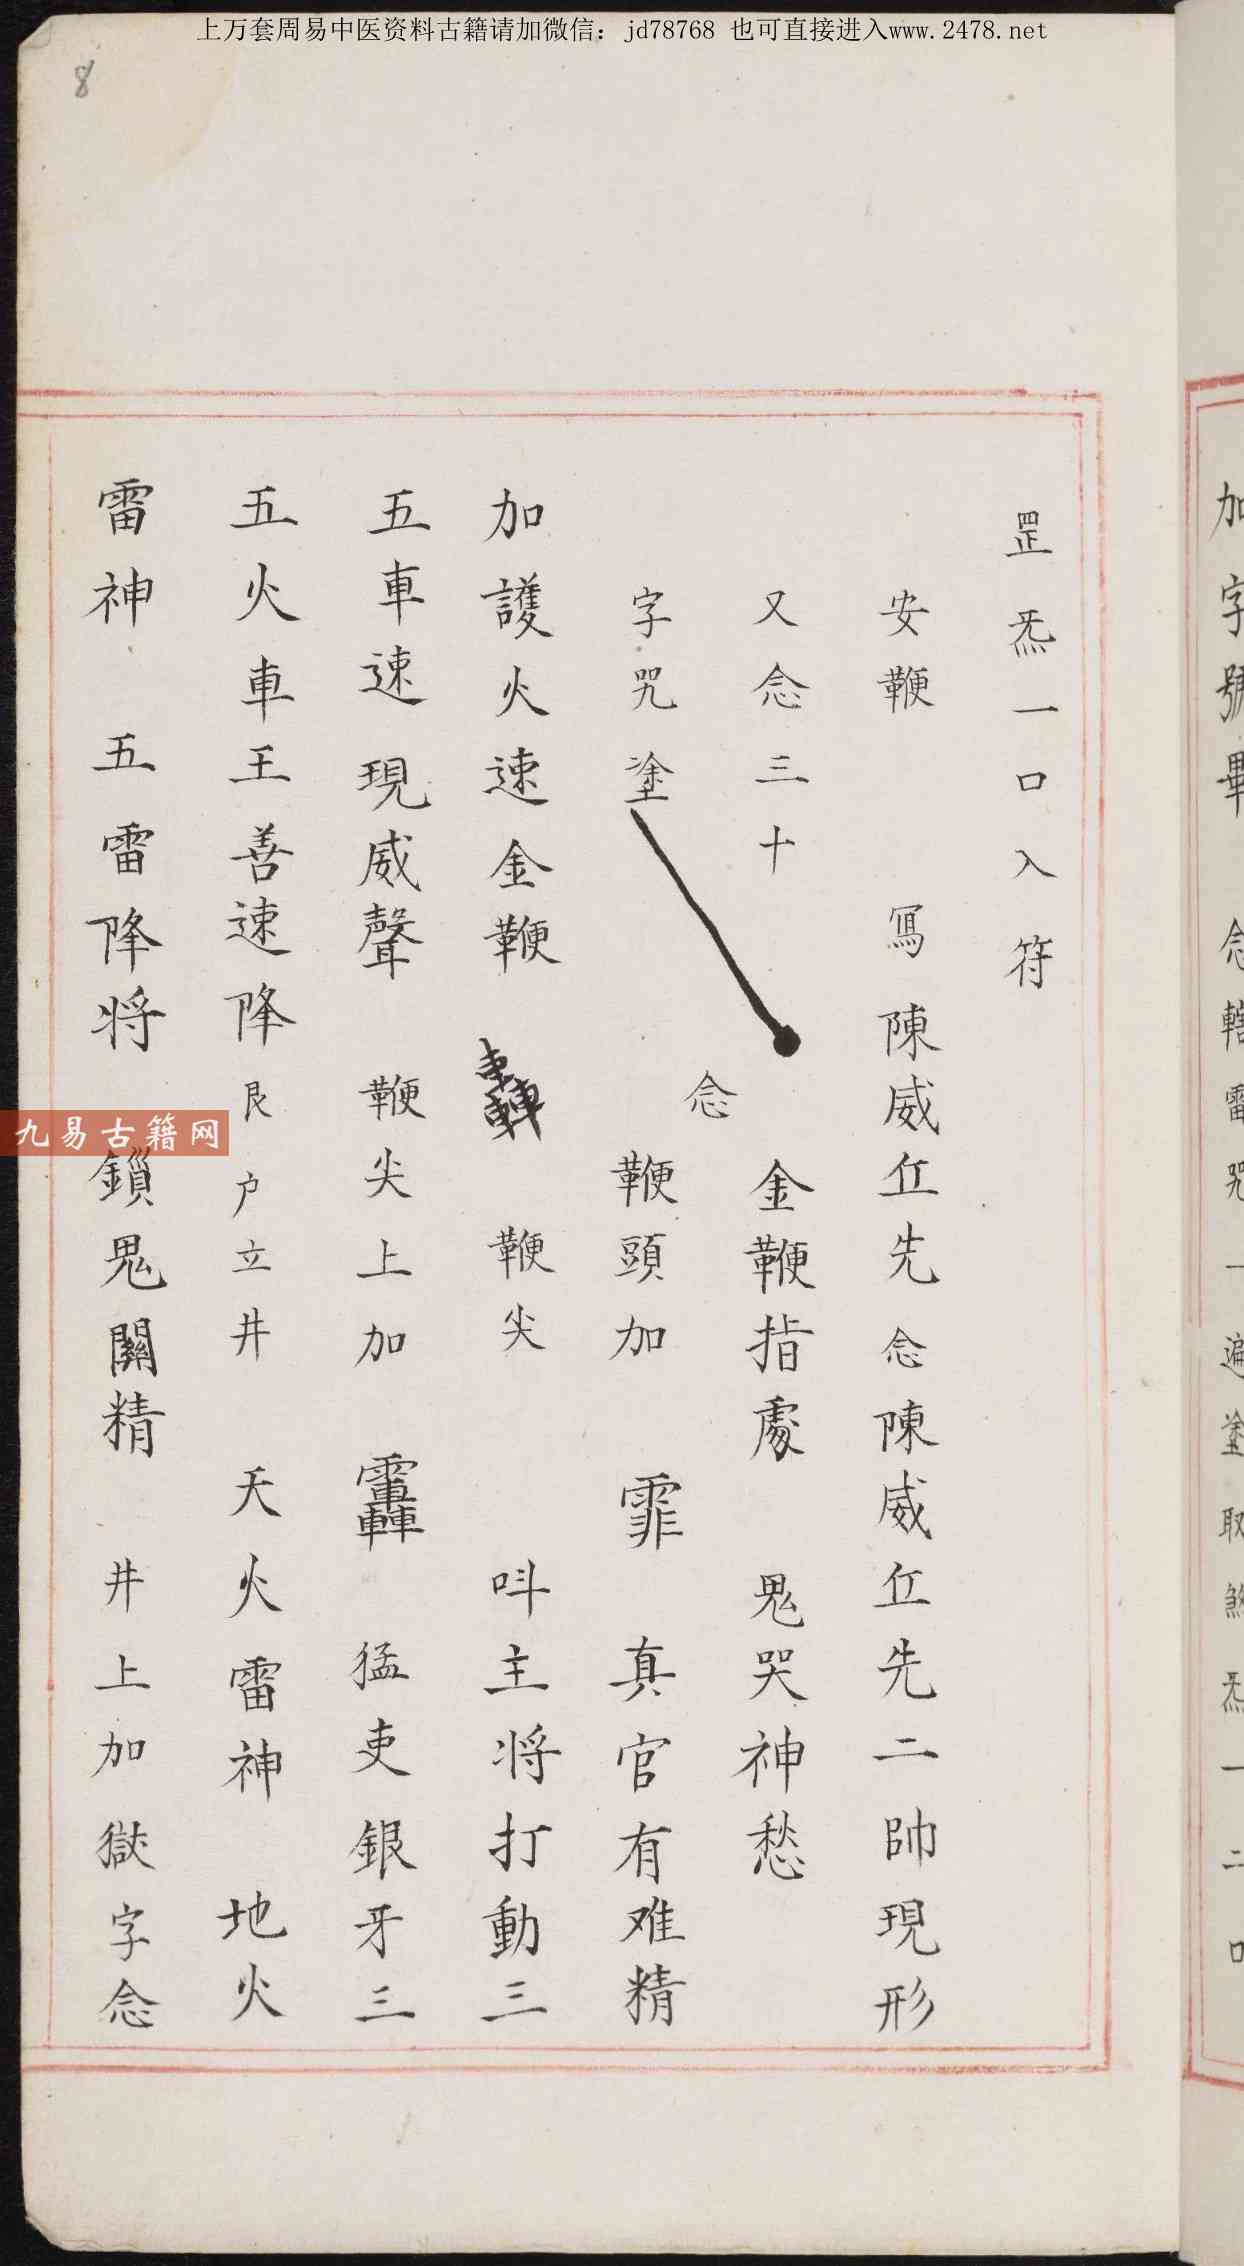 上万套周易中医资料古籍请加微信：jd78768 也可直接进入www.2478.net
8
加字號畢 念轄雷咒一遍塗取煞炁一二口
罡炁一口入符
安鞭 寫陳威丘先念陳威丘先二帥現形
又念三十 金鞭指處 鬼哭神愁
念
字咒塗 鞭頭加 霏 真官有难精
加護火速金鞭 轟 鞭尖 呌主将打動三
五車速現威聲 鞭尖上加 猛吏銀牙三
五火車王善速降 艮户立井 天火雷神 地火
雷神 五雷降将 鎖鬼關精 井上加獄字念
九易古籍网